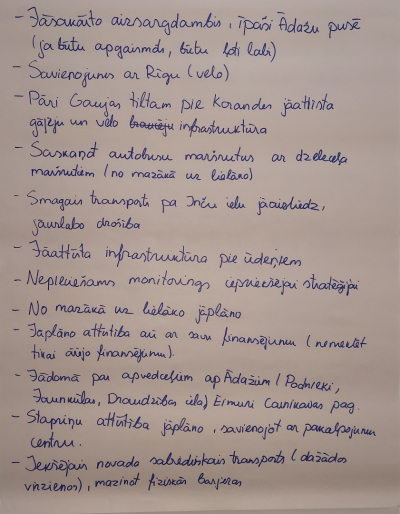 - Jāsakārto aizsargdambis, īpaši Ādažu pusē
(ja būtu apgaismots, būtu ļoti labi)
- Savienojums ar Rīgu (velo)
- Pāri Gaujas tiltam pie Kārandas jāattīsta
gājēju un velo infrastruktūra
- Saskaņot autobusu maršrutus ar dzelzceļa
maršrutiem (no mazākā uz lielāko)
- Smagais transports pa Inču ielu jāaizliedz,
jāuzlabo drošība
- Jāattīsta infrastruktūra pie ūdeņiem
- Nepieciešams monitorings iepriekšējai stratēģijai
- No mazākā uz lielāko jāplāno
- Jāplāno attīstība arī ar savu finansējumu (nemeklēt
tikai ārējo finansējumu).
- Jādomā par apvedceļiem ap Ādažiem (Podnieki,
Jaunkūlas, Draudzības iela) Eimuri Carnikavas pag.
- Stapriņu attīstība jāplāno, savienojot ar pakalpojumu
centru.
- Iekšējais novada sabiedriskais transports (dažādos
virzienos), mazinot fiziskās barjeras